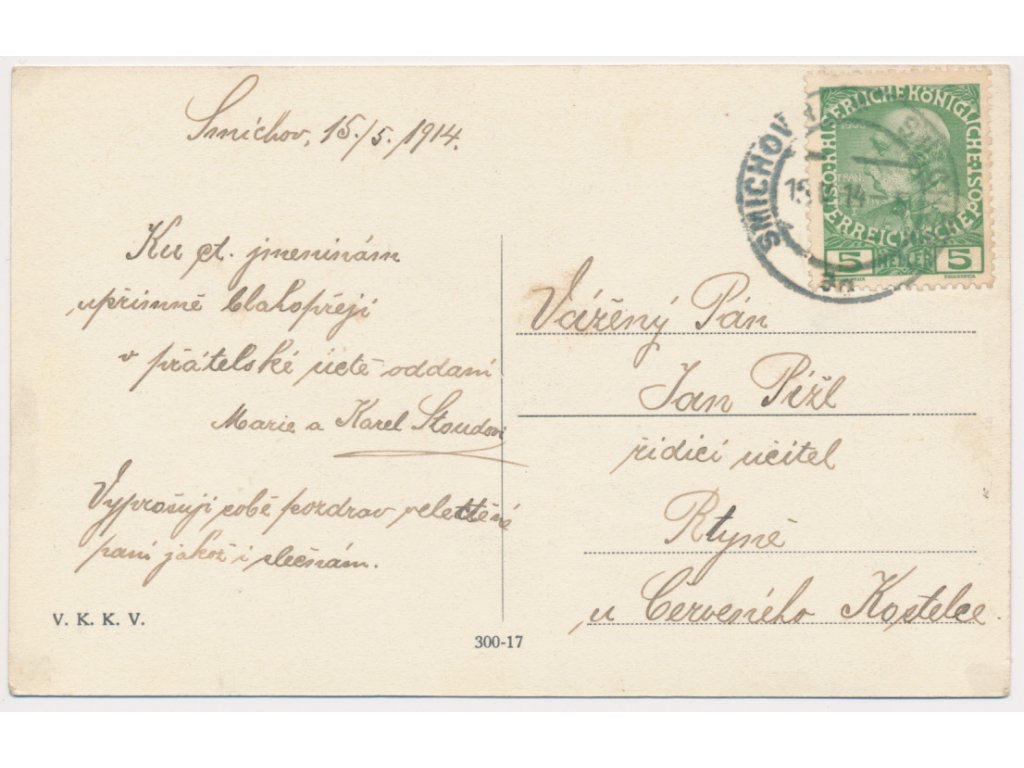 Smíchov, 15./5. 1914.
Ku ct. jmeninám
upřímně blahopřejí
v přátelské úctě oddaní
Marie a Karel Stoudovi
Vyprošuji sobě pozdrav velectěné
paní jakož i slečnám.
V. K. K. V.
300-17
SMICHOV
15 V 14
5a
KAISERLICHE KÖNIGLICHE
ÖSTERREICHISCHE POST
1908
5 HELLER 5
Vážěný Pán
Jan Pížl
řídící učitel
Rtyně
u Červeného Kostelce